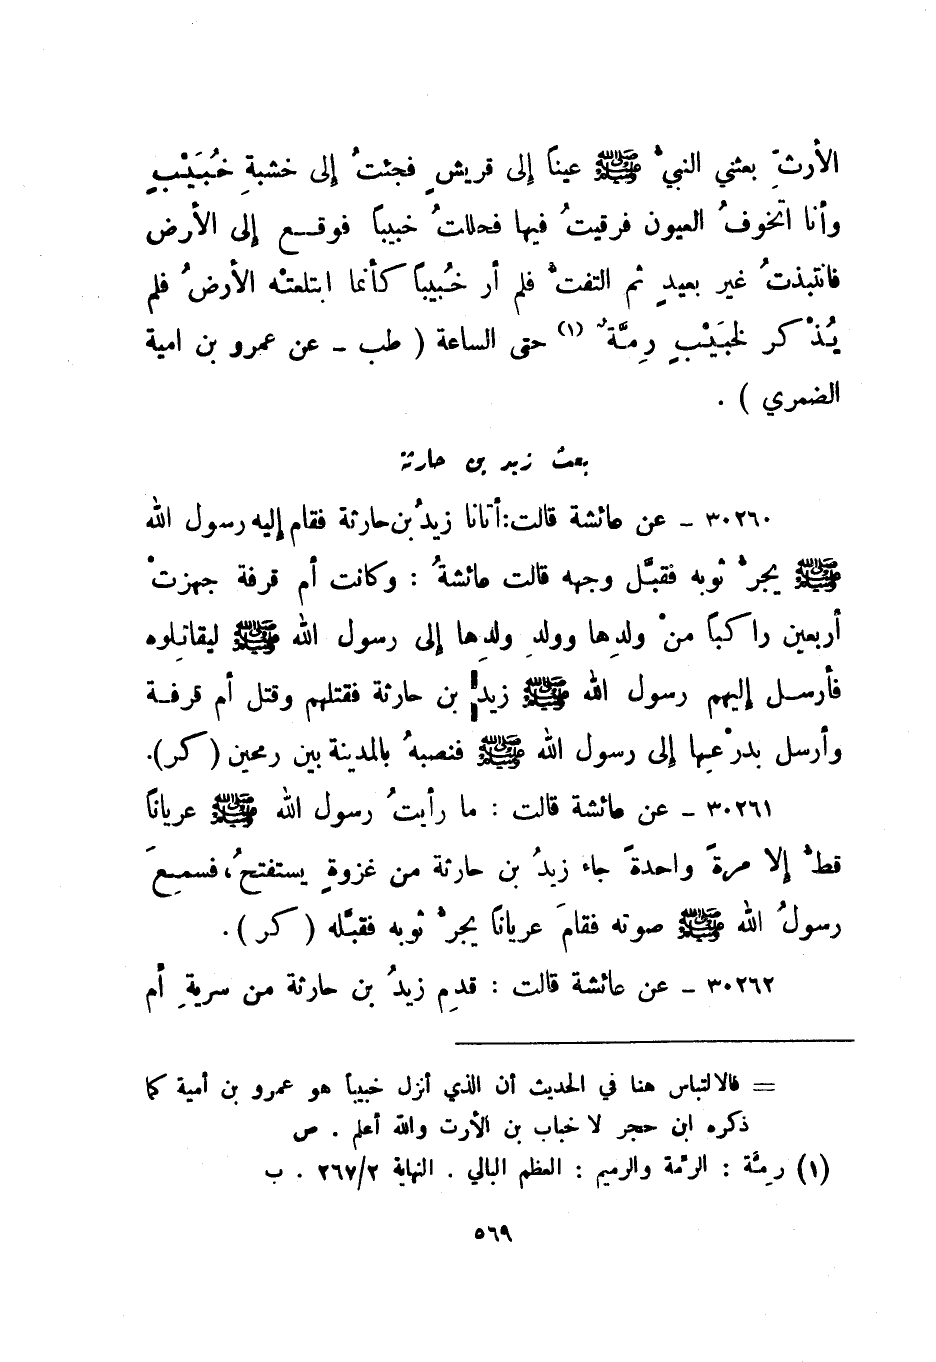 الأرتِّ بعثني النبيُّ ﷺ عيناً إلى قريشٍ فجئتُ إلى خشبةِ خُبَيْبٍ
وأنا اتخوفُ العيون فرقيتُ فيها فحللتُ خبيباً فوقـع إلى الأرض
فانتبذتُ غير بعيدٍ ثم التفتُّ فلم أر خُبيباً كأنما ابتلعتْه الأرضُ فلم
يُذْكر لخبَيْبٍ رِمَّةٌ (١) حتى الساعة ( طب ـ عن عمرو بن امية
الضمري ) .
بعث زيد بن حارثة
٣٠٢٦٠ ـ عن عائشة قالت: أتانا زيدُ بن حارثة فقام إليه رسول الله
ﷺ يجرُّ ثوبه فقبَّل وجهه قالت عائشةُ : وكانت أم قرفة جهزتْ
أربعين راكباً منْ ولدِها وولدِ ولدِها إلى رسول الله ﷺ ليقاتِلوه
فأرسـل إليهم رسول الله ﷺ زيد بن حارثة فقتلهم وقتل أم قرفـة
وأرسل بدرْعِها إلى رسول الله ﷺ فنصبهُ بالمدينة بين رمحين (كر).
٣٠٢٦١ ـ عن عائشة قالت : ما رأيتُ رسول الله ﷺ عرياناً
قطُّ إلا مرةً واحدةً جاء زيدُ بن حارثة من غزوةٍ يستفتحُ، فسمِعَ
رسولُ الله ﷺ صوته فقامَ عرياناً يجرُّ ثوبه فقبَّله ( كر ) .
٣٠٢٦٢ ـ عن عائشة قالت : قدمِ زيدُ بن حارثة من سريةِ أم
= فالالتباس هنا في الحديث أن الذي أنزل خبيباً هو عمرو بن أمية كما
ذكره ابن حجر لا خباب بن الأرت والله أعلم . ص
(١) رِمَّة : الرمّة والرميم : العظم البالي . النهاية ٢٦٧/٢ . ب
٥٦٩